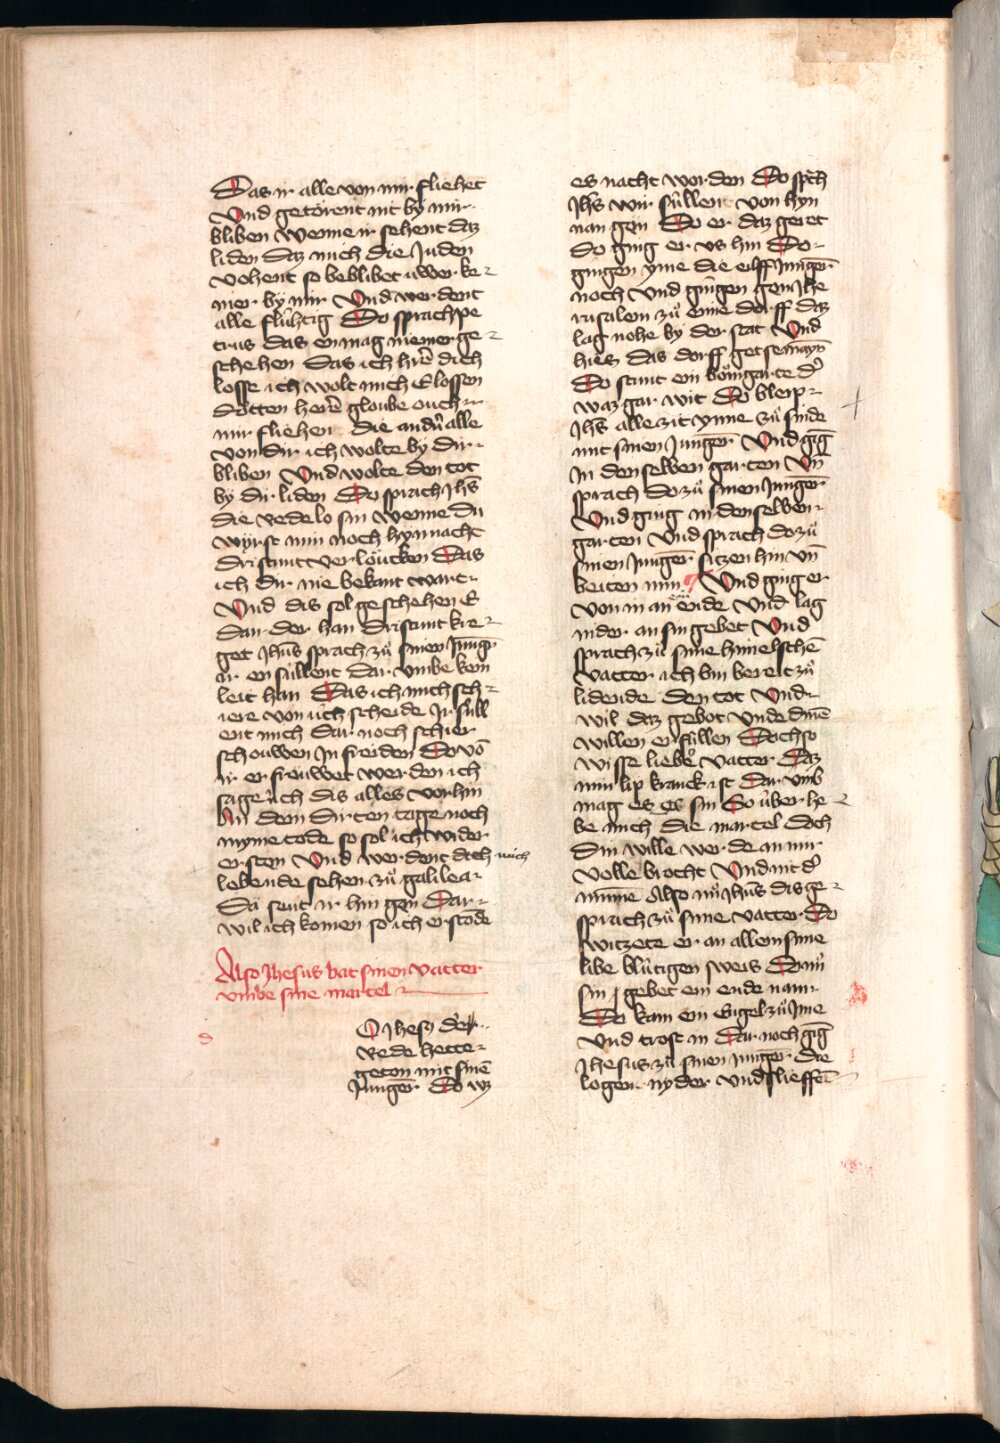 Das ir alle von mir fliehet
Und getörent nit by mir
bliben wenne ir sehent daz
liden daz mich die Juden
vohent so beblibet uwer ke-
iner by mir Und werdent
alle flúhtig Do sprach pe
trus das en mag niemer ge-
schehen Das ich h're dich
losse ich wolt mich E lossen
dötten herre gloube ouch
mir fliehent die andn̄ alle
von dir ich wolte by dir
bliben Und wolte den tot
by dir liden Do sprach Jhs̄
die rede lo sin wenne du
wyrst min noch hynnacht
dristunt verlöucken Das
ich dir nie bekant wart
Und dis sol geschehen E
dan der han dristunt kre-
get Jhūs sprach zů sinen Jungr̄
ir en súllent dar umbe kein
leit han Das ich mich sch-
iere von úch scheide Ir súll
ent mich dar noch schier
schouwen In freiden Do vō
ir erfreuwet werden ich
sage úch dis alles vorhin
An dem dirten tage noch
myme tode so sol ich wider
ersten Und werdent dich mich
lebende sehen zů galilea
Da sent ir hin gen Dar
wil ich komen so ich erstāde
Also Jhesus bat sinen vatter
umbe sine martel
O Jhesꝫ der
rede hette
geton mit sinē
Junger Do wz
es nacht worden Do sp̄ch
Jhs̄ wir súllent von hyn
nan gen Do er daz geret
do ging er us hin Do
gingen yme die eilff Junger̄
noch Und gingen gen Jhe
rusalem zů eime dorff daz
lag nohe by der stat Und
hies das dorff getsemayn̄
Do stunt ein bömgarte d'
waz gar wit Do bleip
Jhs alle zit ynne zů sinde
mit sinen Junger̄ Und gīg
In den selben garten Un̄
sprach do zů sinen Junger̄
Und ging in den selben
garten Und sprach do zů
sinen Junger̄ sitzen hin un̄
beiten min Und ging er
von in an ein ende Und lag
nider an sin gebet Und
sprach zů sime himelschē
vatter ich bin bereit zů
lidende den tot Und
wil daz gebot Unde dinē
willen erfúllen Doch so
wisse lieber vatter Daz
min lip kranck ist Dar umb
mag es es sin So úber he-
be mich die martel doch
din wille werde an mir
volle brocht Und nit d'
minne Also nů Jhūs dis ge-
sprach zů sime vatter Do
switzete er an allem sime
libe blútigen sweis Do nů
sin gebet ein ende nam
Do kam ein Engel zů Ime
Und trost in Dar noch gīg
Jhesus zů sinen Junger̄ die
logen nyder und slieffen